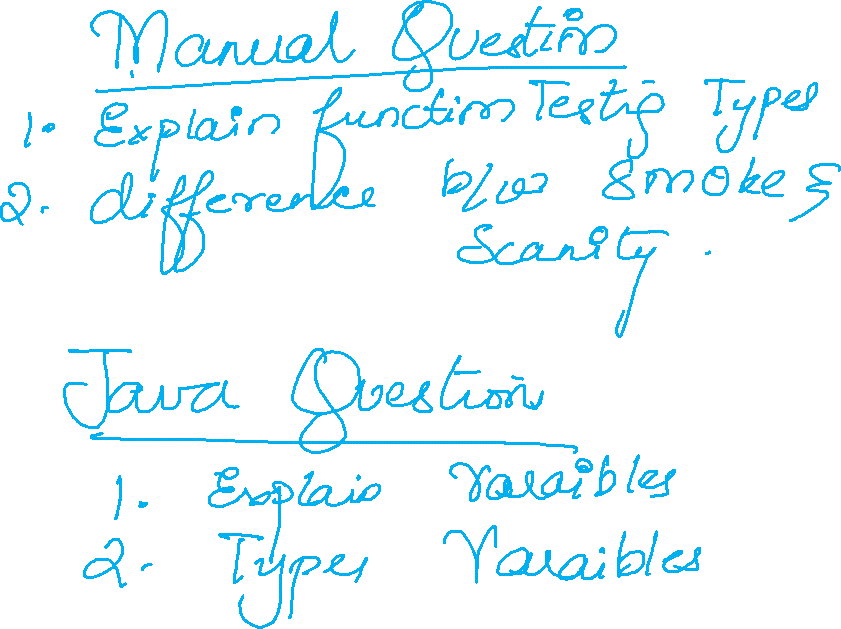 Manual Question
1. Explain function Testig Types
2. difference b/w smoke &
Scanity.
Java Question
1. Explain Varaibles
2. Types Varaibles